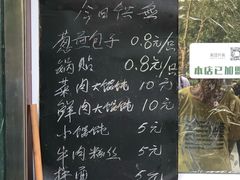 今日供应
葱荷包子 0.8元/只
锅贴 0.8元/只
菜肉大馄饨 10元
鲜肉大馄饨 10元
小馄饨 5元
牛肉粉丝 5元
本店已加